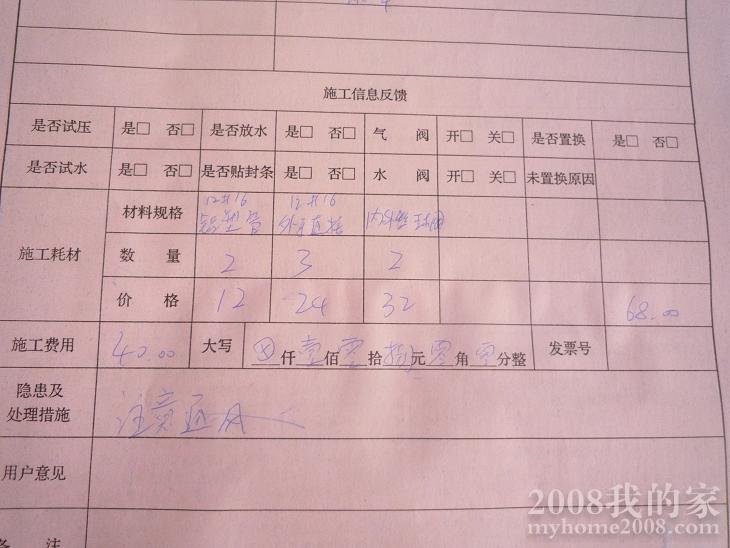 施工信息反馈
是否试压 是□ 否□ 是否放水 是□ 否□ 气 阀 开□ 关□ 是否置换 是□ 否□
是否试水 是□ 否□ 是否贴封条 是□ 否□ 水 阀 开□ 关□ 未置换原因
施工耗材
材料规格 铝塑管 外牙直接
数 量 2 3 2
价 格 12 24 32 68.00
施工费用 40.00 大写 仟壹佰零拾捌元零角零分整 发票号
隐患及
处理措施 注意通风
用户意见
备 注
2008我的家
myhome2008.com